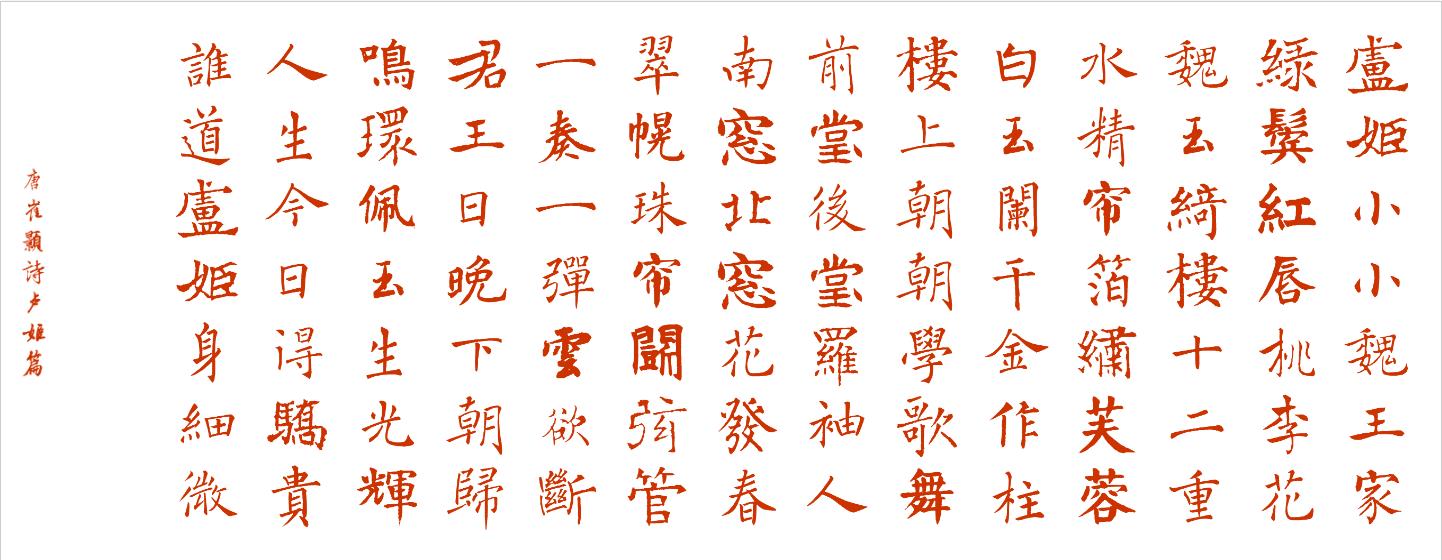 盧姬小小魏王家
綠鬓紅唇桃李花
魏玉綺樓十二重
水精帘箔繡芙蓉
白玉闌干金作柱
樓上朝朝學歌舞
前堂後堂羅袖人
南窓北窓花發春
翠幌珠帘鬭弦管
一奏一彈雲欲斷
君王日晚下朝歸
鳴環佩玉生光輝
人生今日得驕貴
誰道盧姬身細微
唐崔顥詩卢姬篇